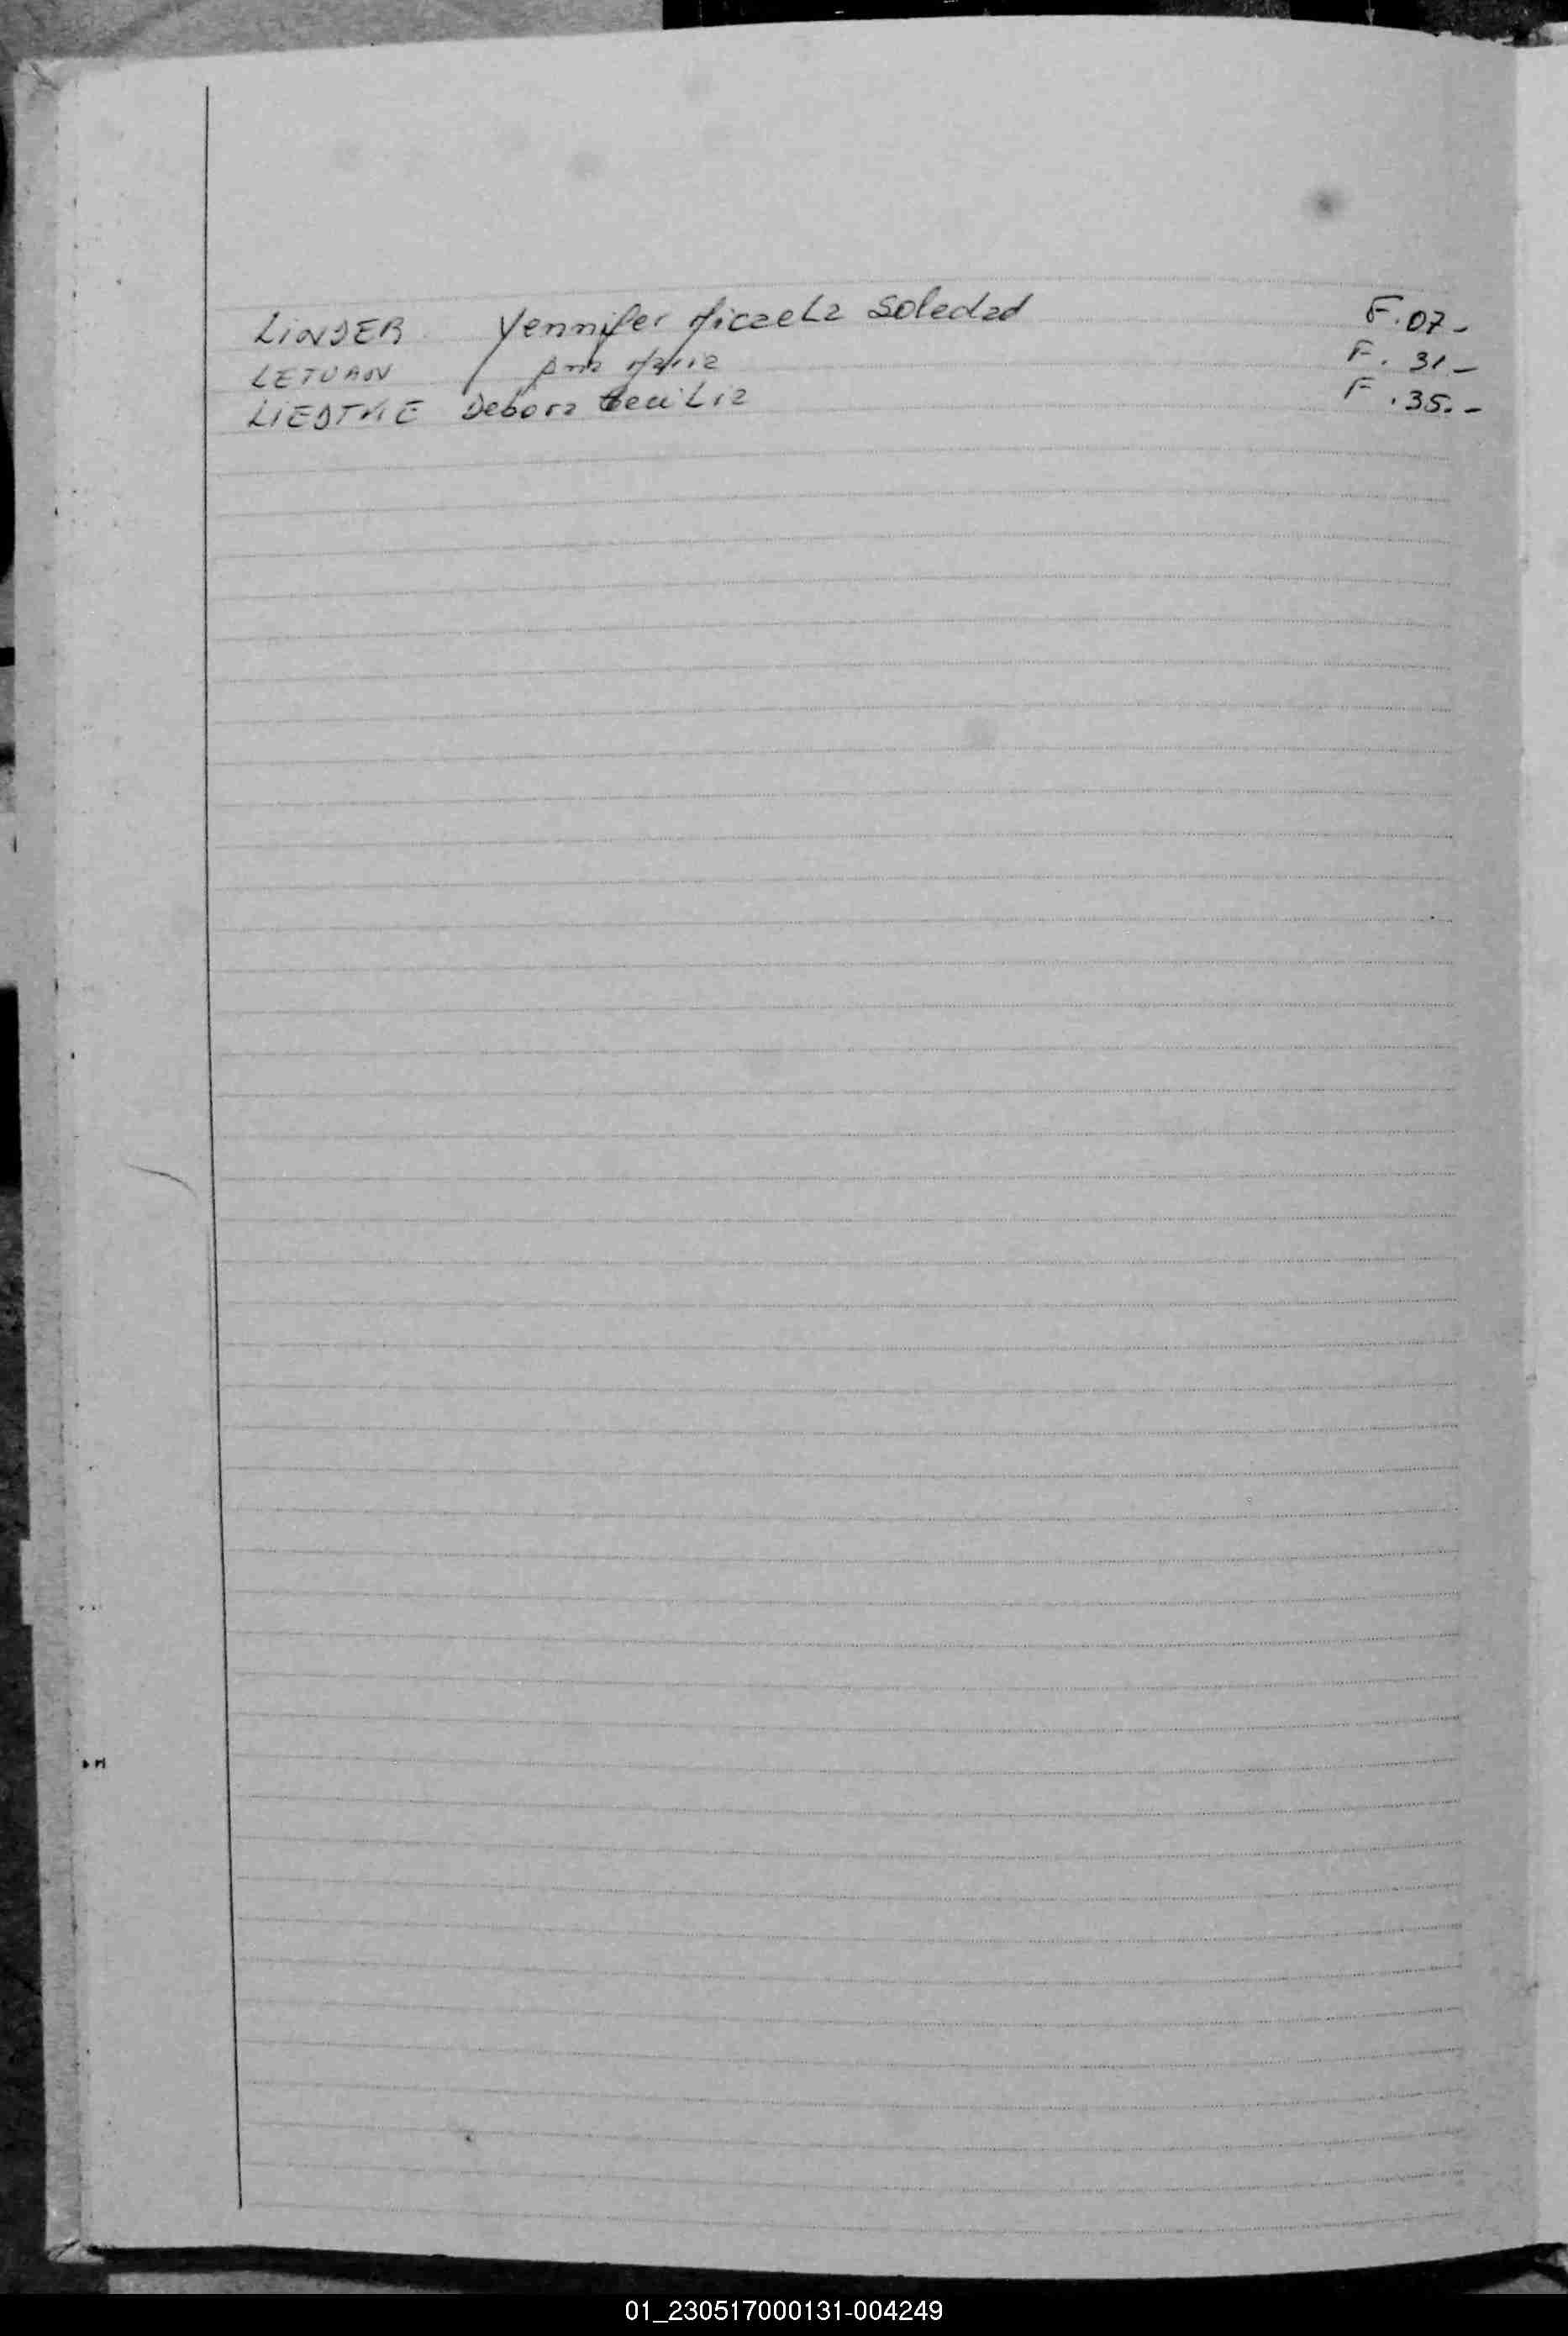 LINDER Yennifer Micaela Soledad F.07-
LETUAN Ana Maria F.31-
LIEDTKE Debora Cecilia F.35.-
01_230517000131-004249